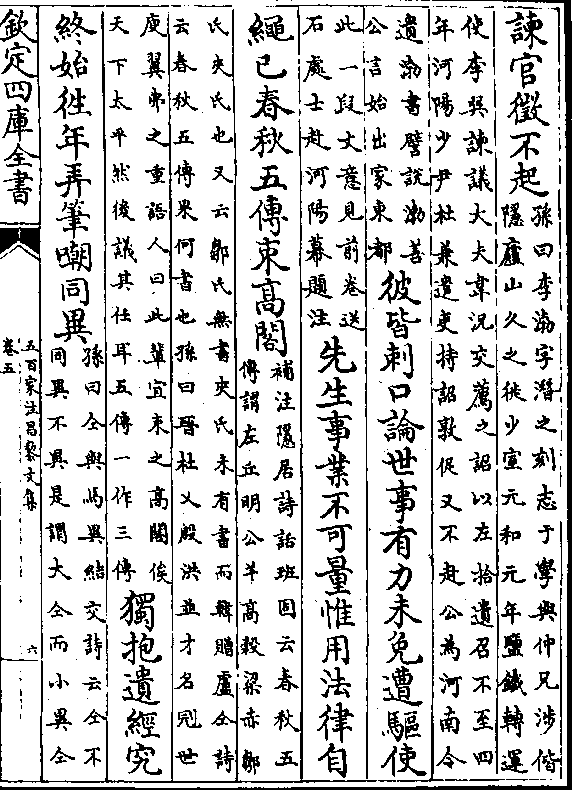 諫官徵不起孫曰李渤字濬之刻志于學與仲兄涉偕
隱廬山久之徙少室元和元年鹽鐵轉運
使李巽諫議大夫韋況交薦之詔以左拾遺召不至四
年河陽少尹杜兼遣吏持詔敦促又不赴公為河南令
遺渤書譬說渤善
公言始出家東都彼皆刺口論世事有力未免遭驅使
此一段文意見前卷送
石處士赴河陽幕題注先生事業不可量惟用法律自
繩已春秋五傳束高閣補注隱居詩話班固云春秋五
傳謂左丘明公羊高穀梁赤鄒
氏夾氏也又云鄒氏無書夾氏未有書而韓贈盧仝詩
云春秋五傳果何書也孫曰晉杜乂殷洪並才名冠世
庾翼弗之重語人曰此輩宜束之高閣俟
天下太平然後議其任耳五傳一作三傳獨抱遺經究
終始徃年弄筆嘲同異孫曰仝與馬異結交詩云仝不
同異不異是謂大仝而小異仝
欽定四庫全書
五百家注昌黎文集
卷五
六